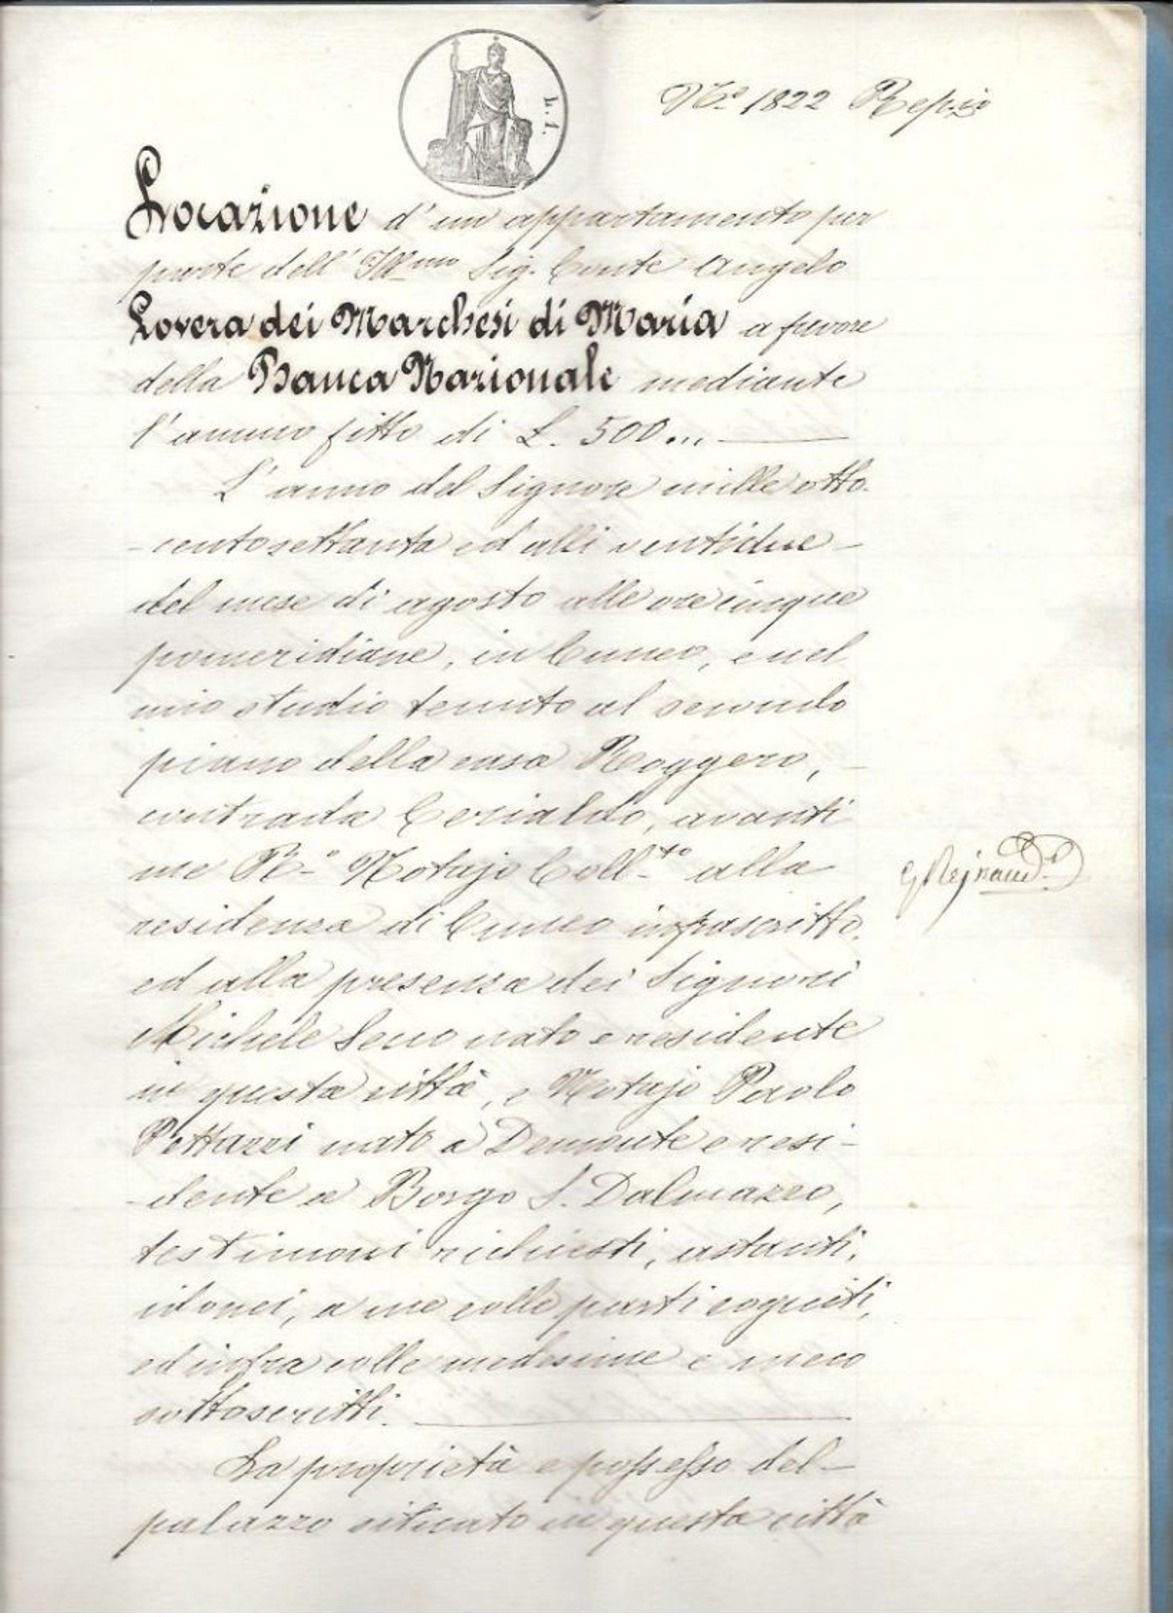 L. 1.
N.º 1822 Rep.rio
Locazione d'un appartamento per
parte dell'Ill.mo Sig. Conte Angelo
Lovera dei Marchesi di Maria a favore
della Banca Nazionale mediante
l'annuo fitto di L. 500...
L'anno del Signore mille otto-
-centosettanta ed alli ventidue
del mese di agosto alle ore cinque
pomeridiane, in Cuneo, e nel
mio studio tenuto al secondo
piano della casa Roggero,
contrada Cerialdo, avanti
me R.º Notajo Coll.to alla
residenza di Cuneo infrascritto,
ed alla presenza dei Signori
Michele Seno nato e residente
in questa città, e Notajo Paolo
Pettazzi nato a Demonte e resi-
-dente a Borgo S. Dalmazzo,
testimoni richiesti, astanti,
idonei, a me colle parti cogniti,
ed infra colle medesime e meco
sottoscritti.
G Rejnaud
La proprietà e possesso del
palazzo situato in questa città